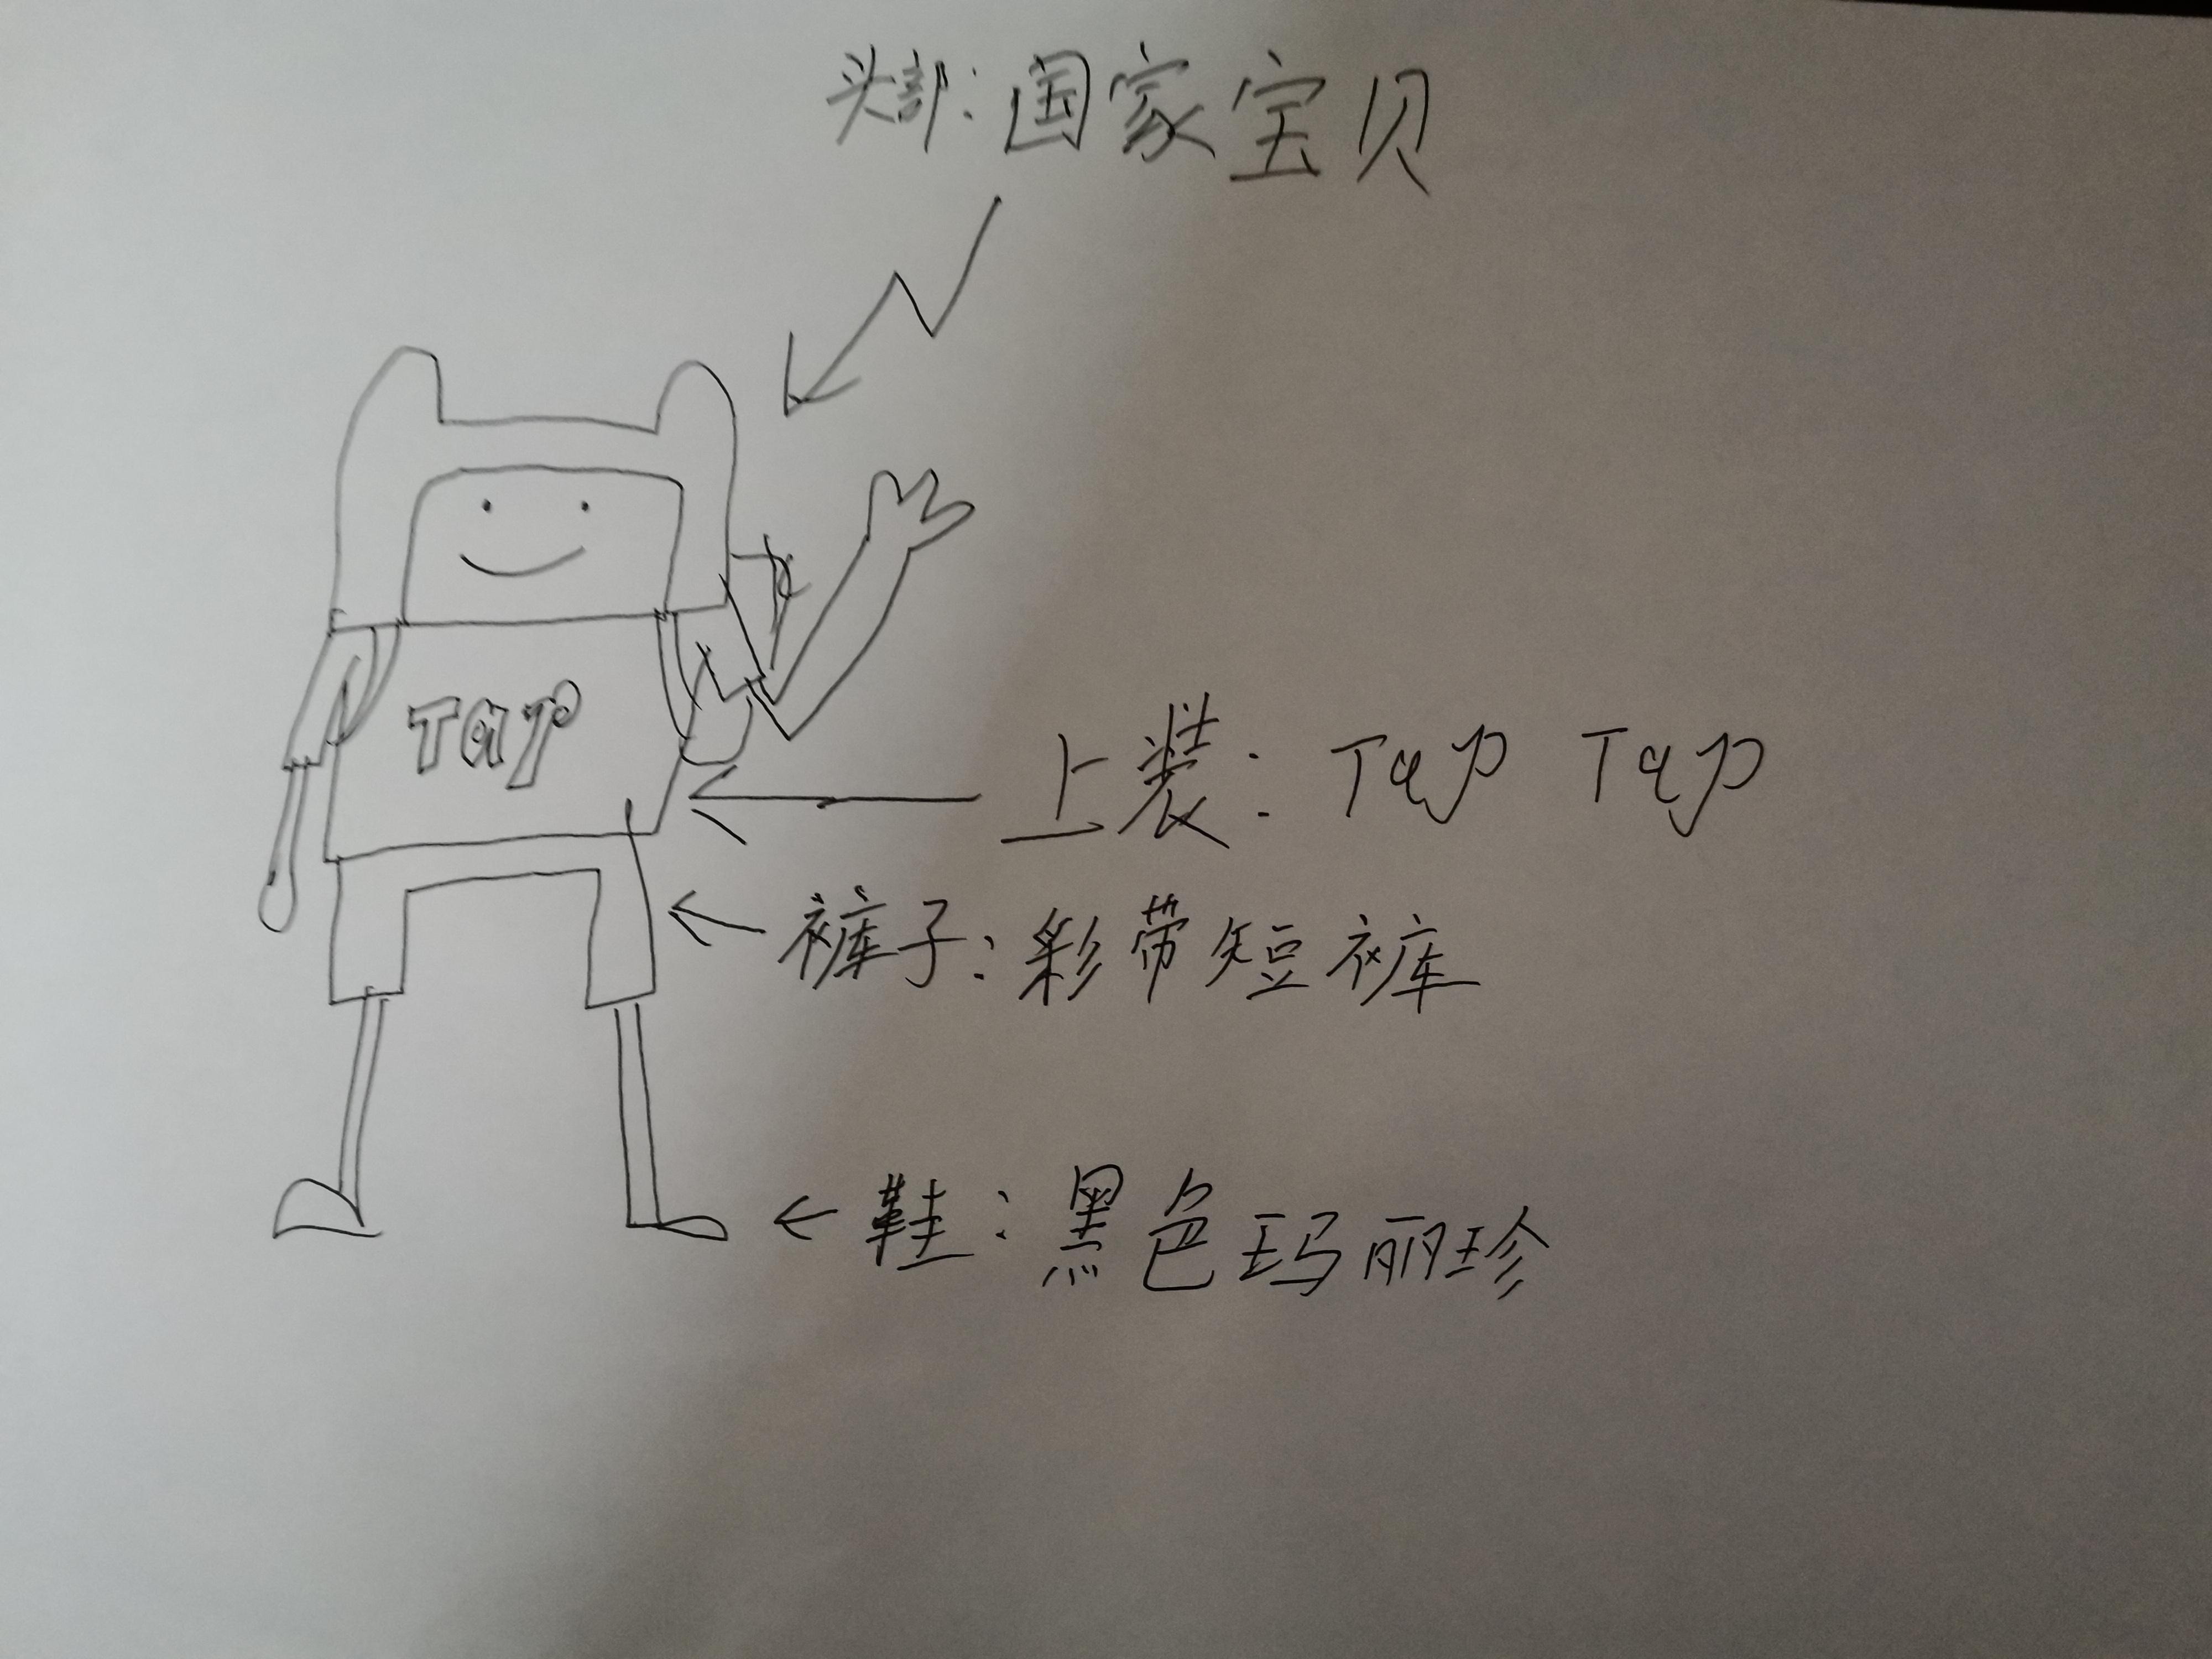 头部：国家宝贝
Tap
上装：Tap Tap
裤子：彩带短裤
鞋：黑色玛丽珍